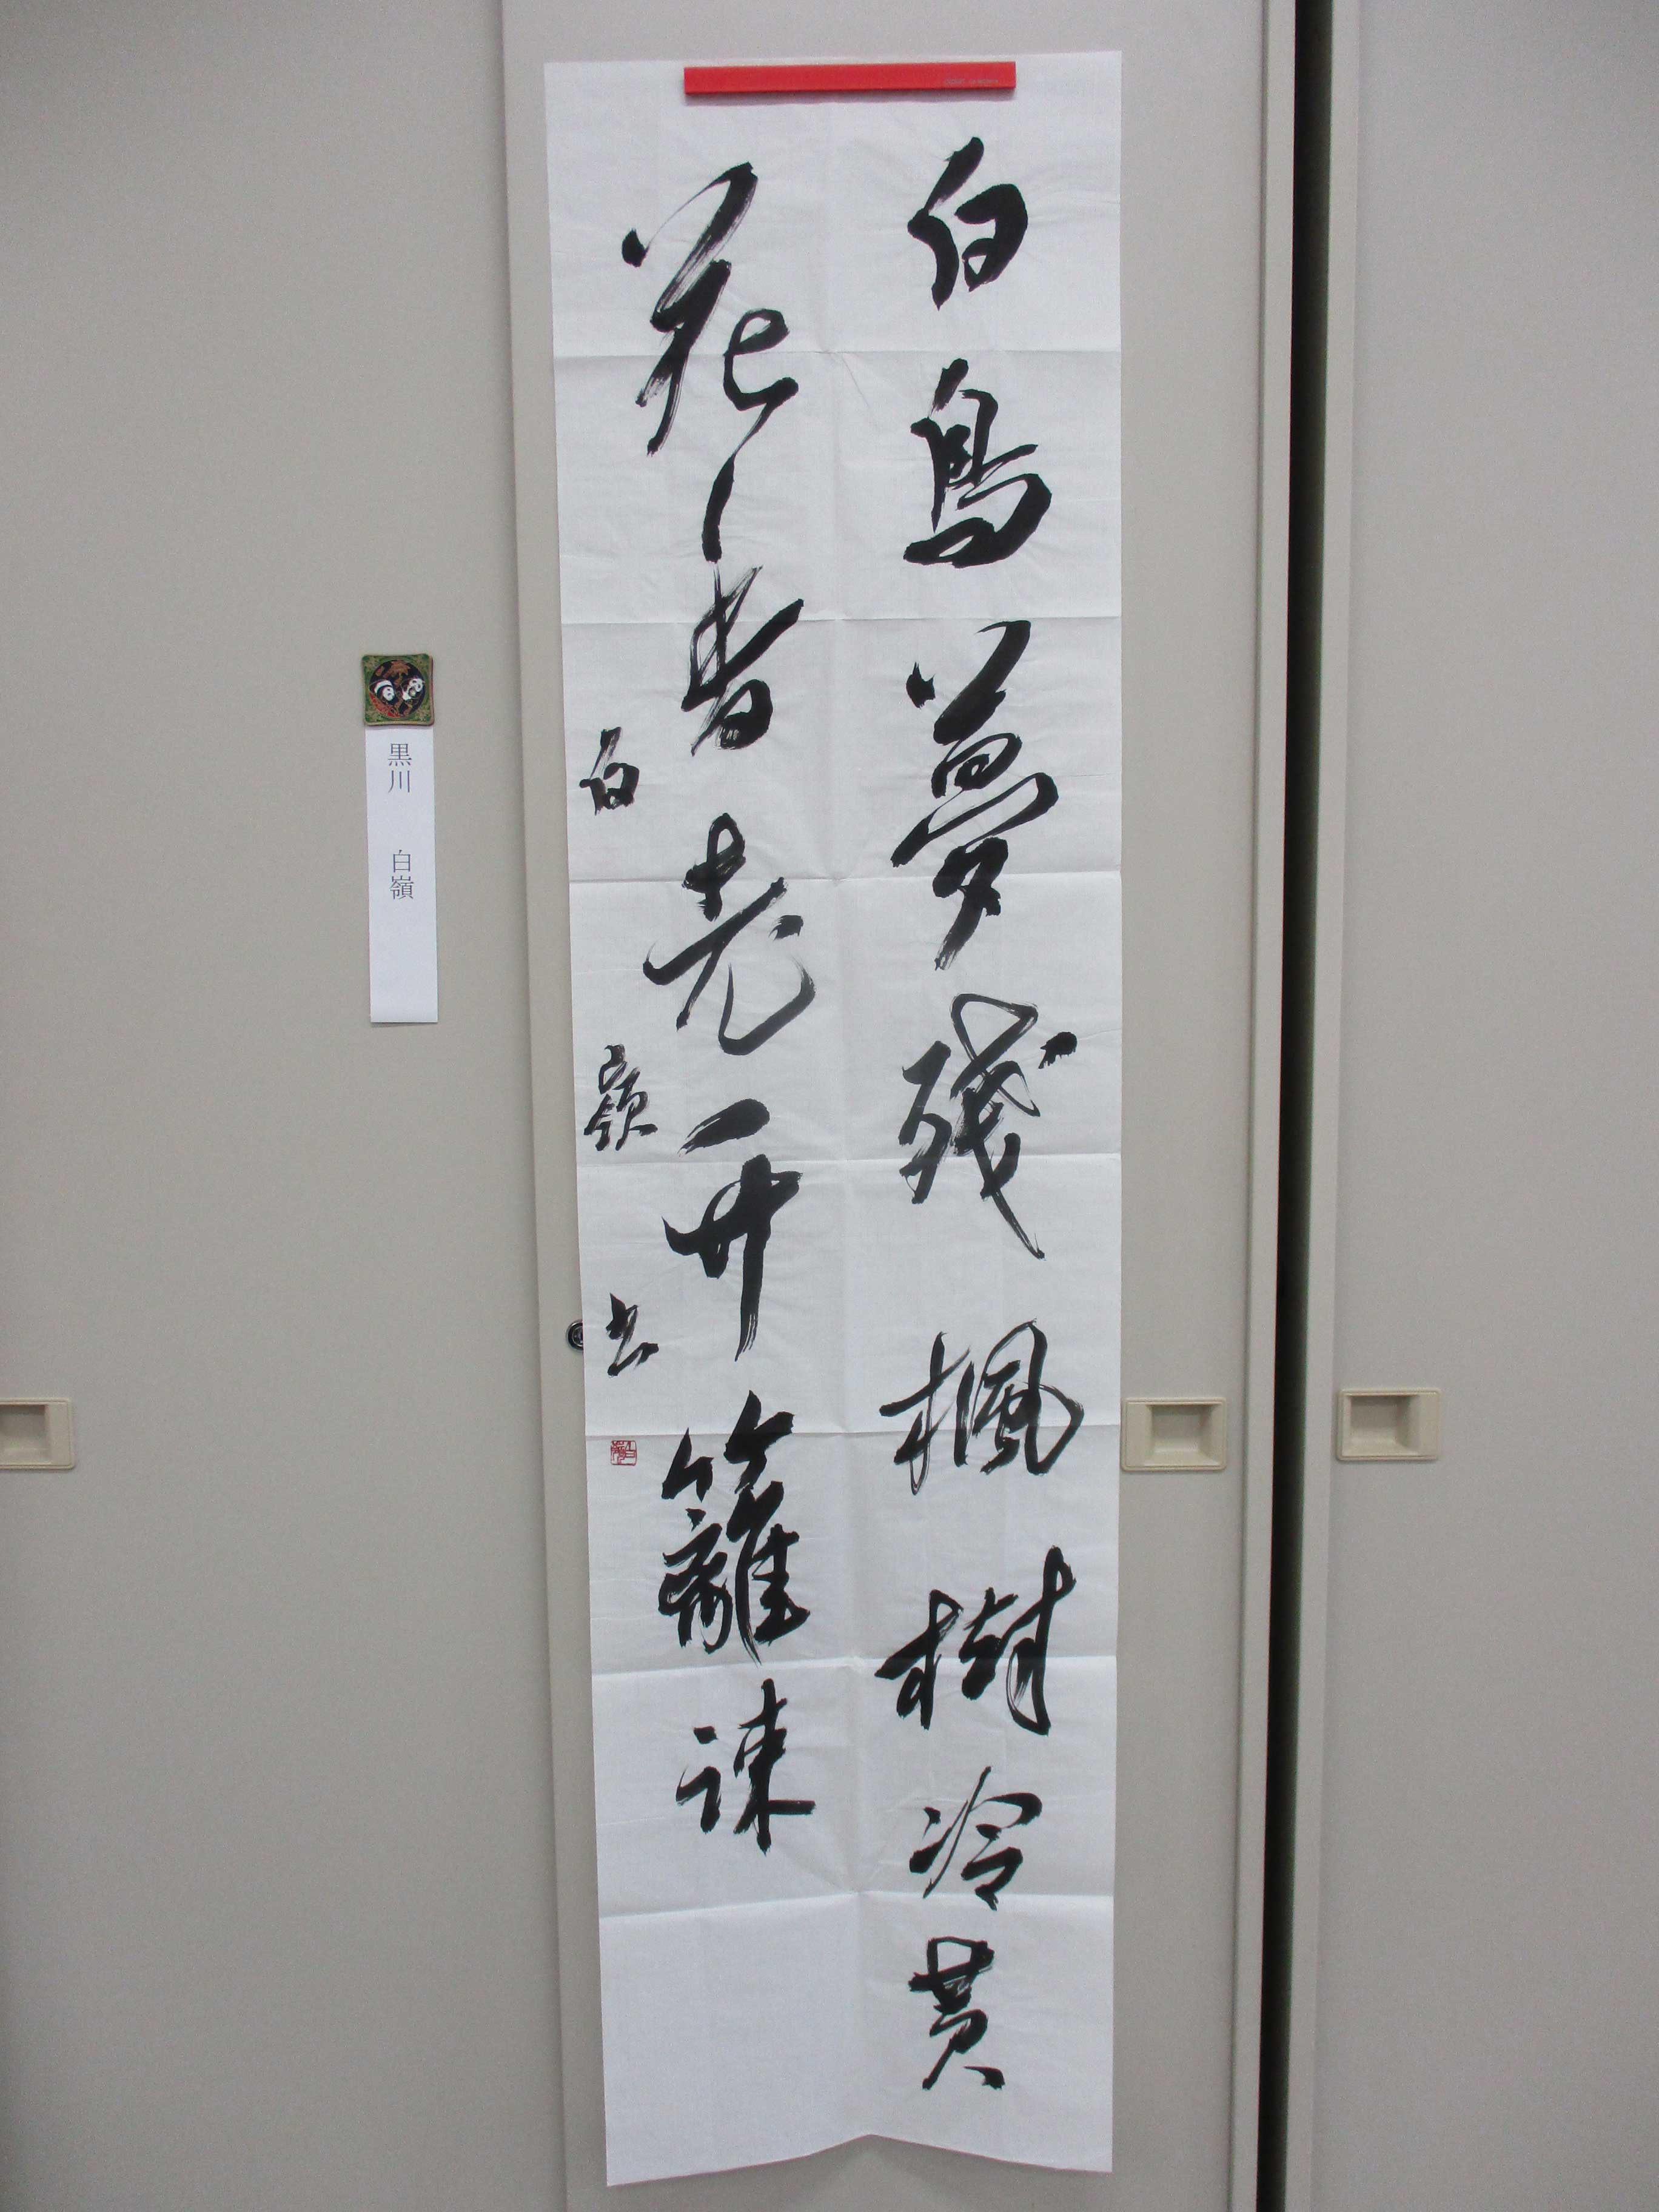 白鳥夢残楓樹冷黄
花香老一叢籬疎
白嶺書
黒川 白嶺